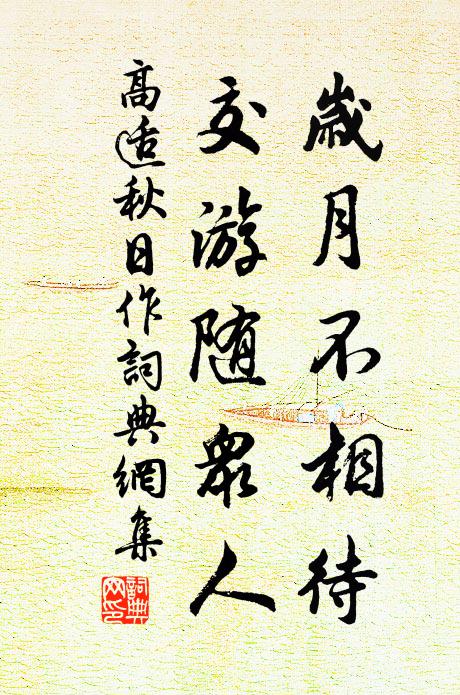 歲月不相待
交游随眾人
高适秋日作詞典網集
詞典網印